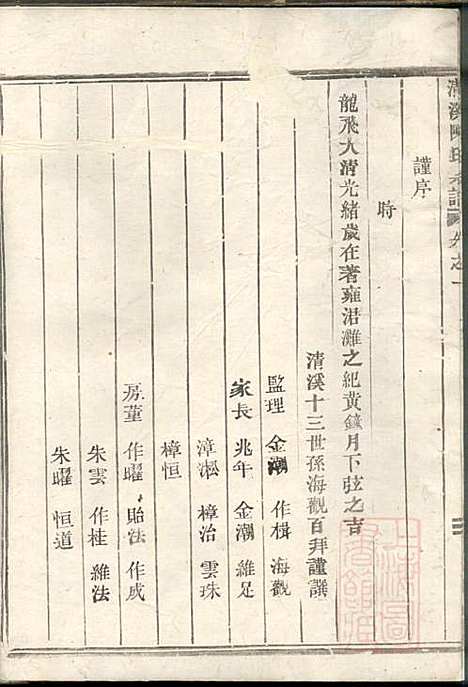 清溪陳氏宗譜 卷之一
謹序
時
龍飛大清光緒歲在著雍涒灘之紀黃鐘月下弦之吉
清溪十三世孫海觀百拜謹譔
監理 金潮 作楫 海觀
家長 兆年 金潮 維足
漳淞 樟治 雲珠
樟恒
房董 作曜 貽法 作成
朱雲 作桂 維法
朱曜 恒道
上海圖書館藏